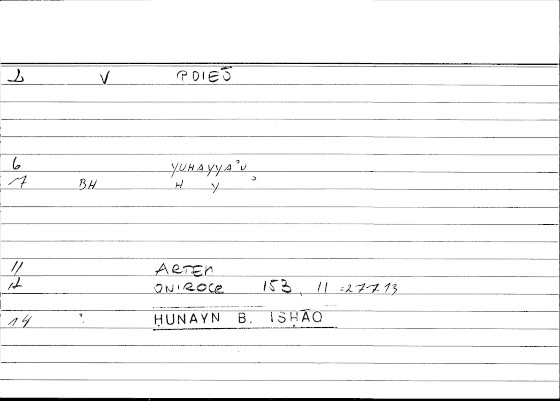 1 V POIEŌ
6 YUHAYYAʾU
7 BH H Y ʾ
11 ARTEM
12 ONIROCR 153, 11 = 277.13
14 ḤUNAYN B. ISḤĀQ